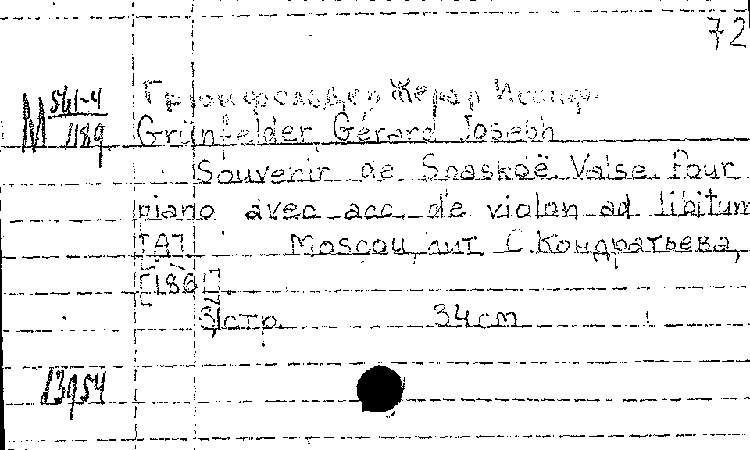 72
М 561-4/1189
Грюнфельдер, Жерар Иосиф.
Grünfelder, Gérard Joseph
Souvenir de Spaskoë. Valse pour
piano avec acc. de violon ad libitum
[A] Moscou, лит. С. Кондратьева,
[186 ].
3 стр. 34 см
13954